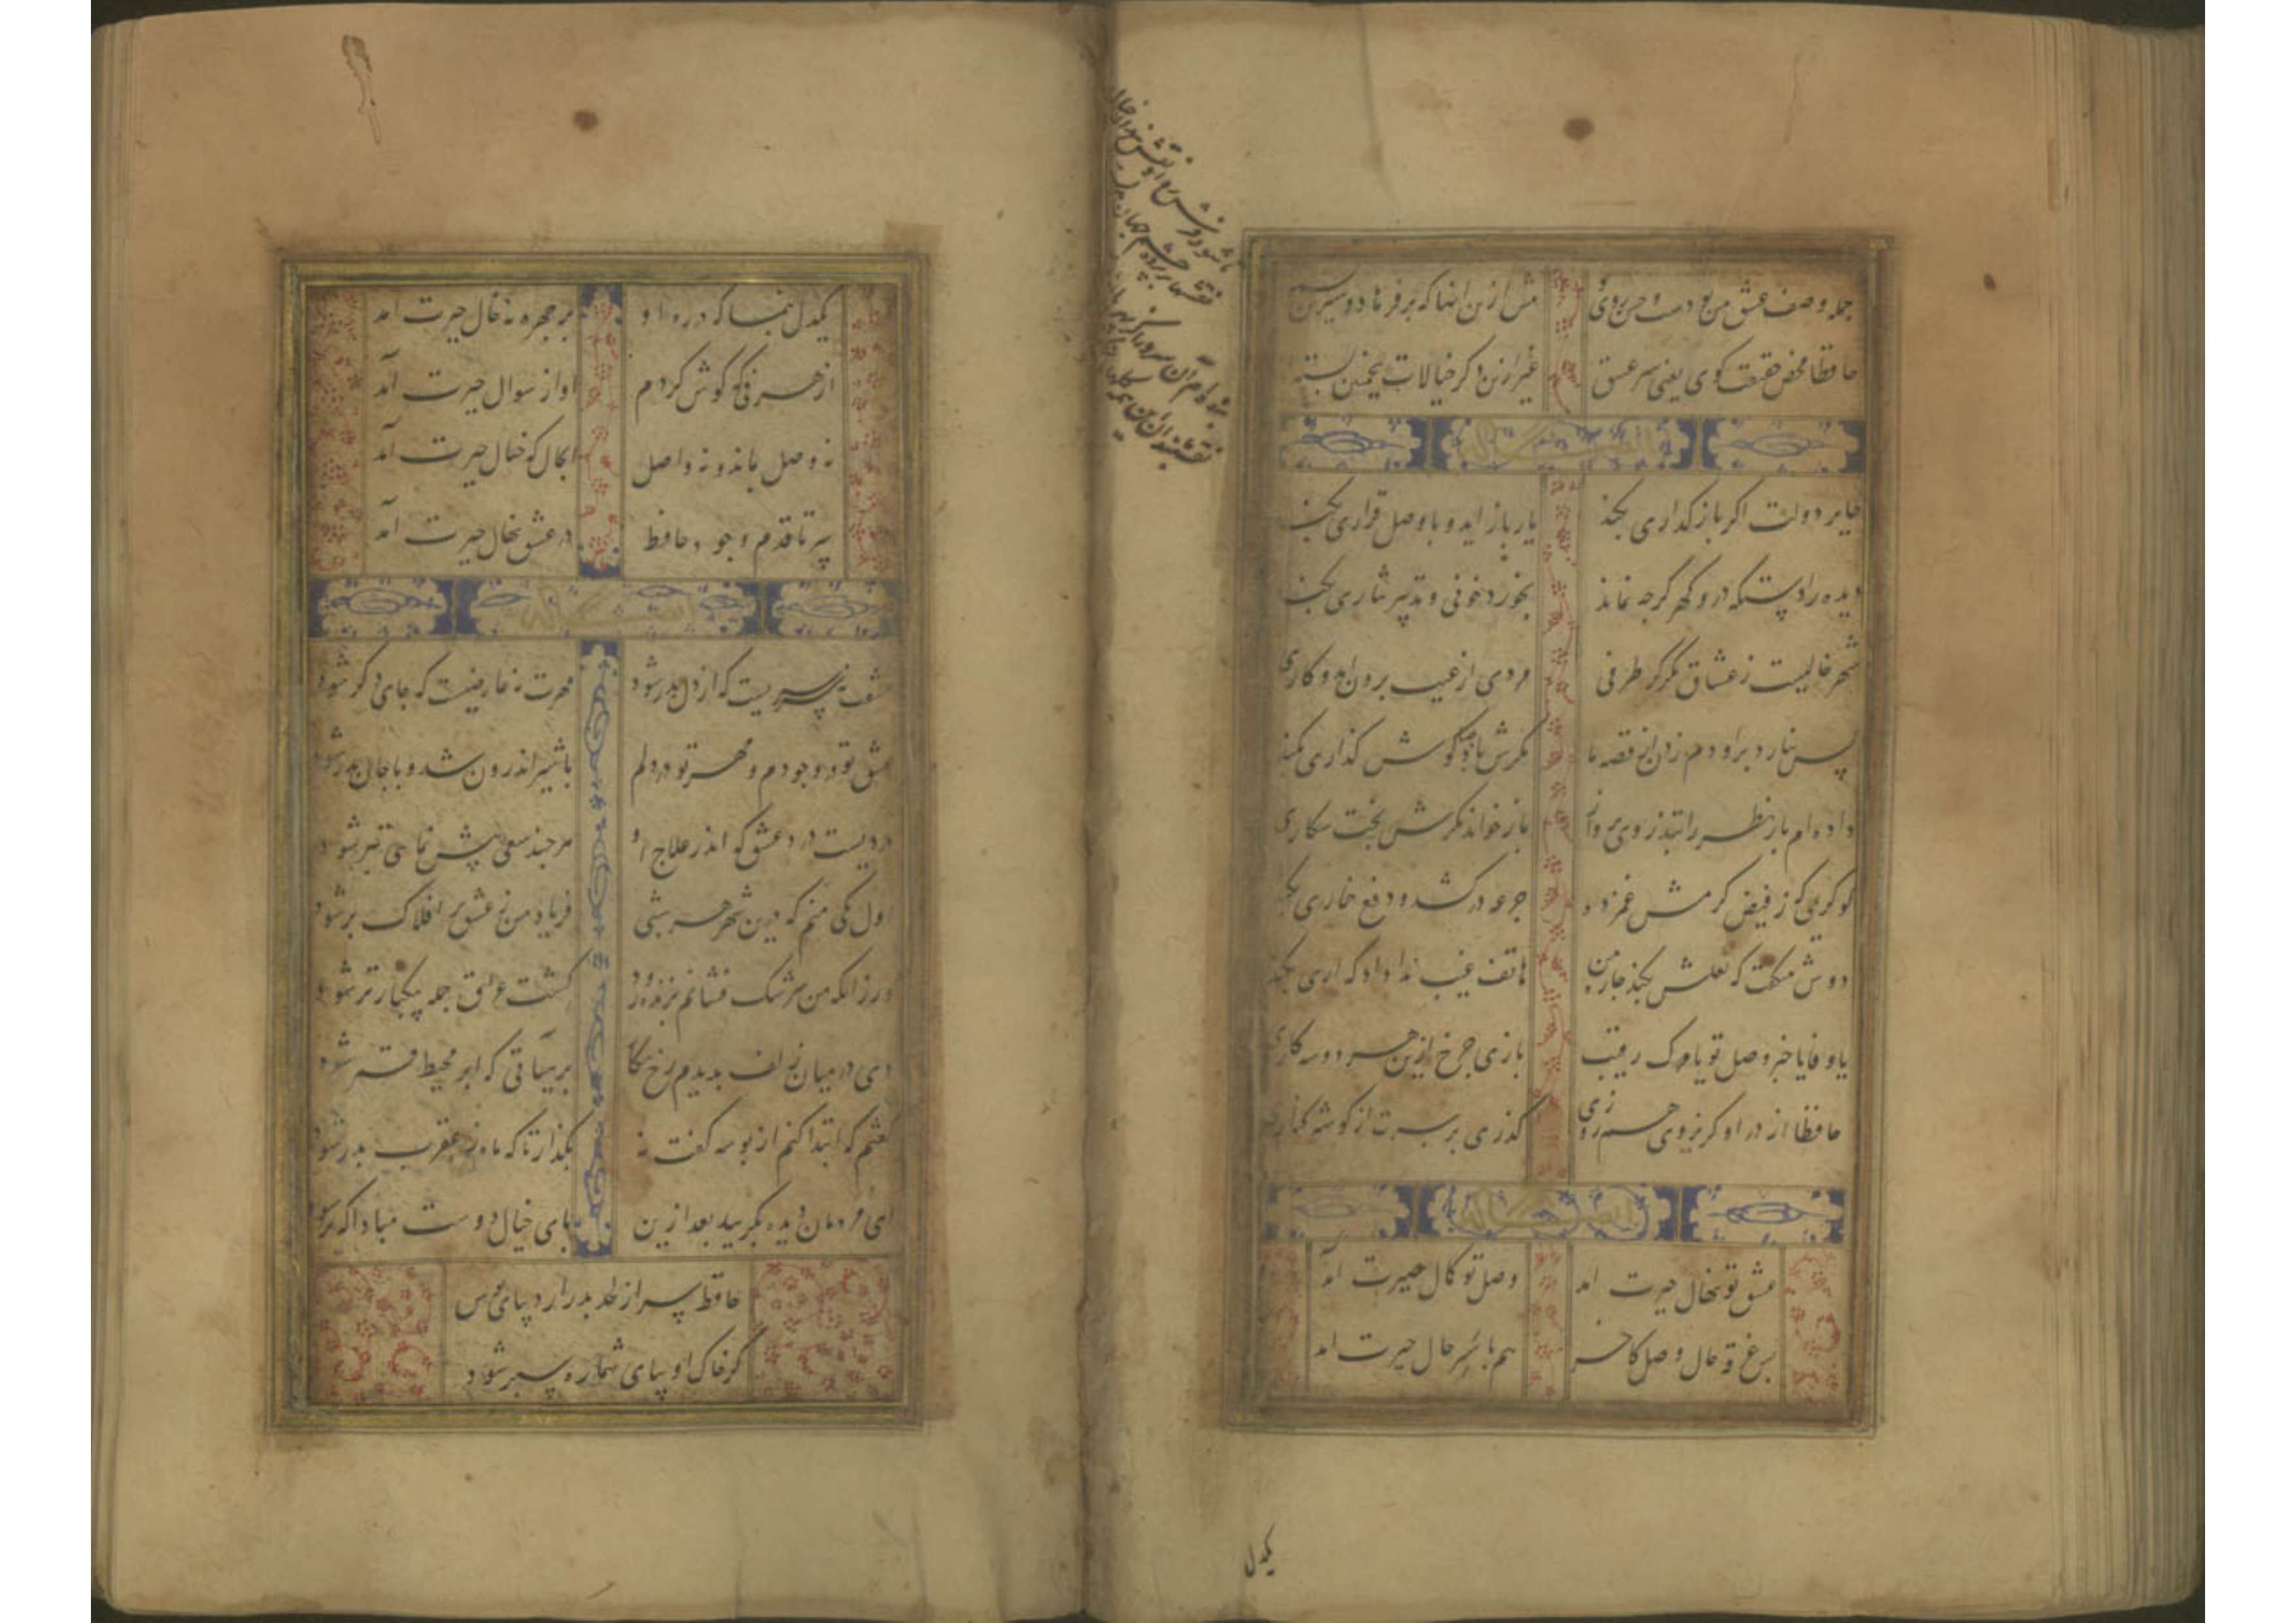 جمله وصف عشق من بودست و حسن روی تو
مش ازین انها که بر فرهاد و شیرین بسته
حافظا محض حقیقت گوی یعنی سر عشق
غیر ازین دکر خیالات بتخمین بسته
طایر دولت اکر باز کذاری بکند
یار باز اید و با وصل قراری بکند
دیده را دستکه در و کهر کرجه نماند
بخورد خونی و تدبیر نثاری بکند
شهر خالیست ز عشاق مکر کز طرفی
مردی از غیب برون اید و کاری
کس نیارد بر او دم زدن از قصه ما
مکرش باد صبا کوش کذاری بکند
داده ام باز نظر را بتذروی پرواز
باز خواند مکرش بخت شکاری
کو کریمی که ز فیض کرمش غمزده
جرعه در کشد و دفع خماری بکند
دوش میکفت که لعلش بکند چاره من
هاتف غیب ندا داد که اری بکند
یا وفا یا خبر وصل تو یا مرک رقیب
بازی جرخ ازین هر دو سه کاری
حافظا از در او کر نروی هم روزی
کذری بر سرت از کوشه کناری
عشق تو نهال حیرت امد
وصل تو کمال حیرت آمد
بس غرقه حال وصل کاخر
هم با سر حال حیرت امد
یکدل
یکدل بنما که در ره او
بر چهره نه خال حیرت امد
از هر طرفی که کوش کردم
اواز سوال حیرت آمد
نه وصل بماند و نه واصل
انجا که خیال حیرت آمد
سر تا قدم وجود حافظ
در عشق نهال حیرت آمد
عشقت نه سرسریست که از دل بدر شود
مهرت نه عارضیست که جای دکر شود
عشق تو در وجودم و مهر تو در دلم
با شیر اندرون شد و با جان بدر شود
دردیست درد عشق که اندر علاج او
هر چند سعی بیش نمایی بتر شود
اول یکی منم که درین شهر هر شبی
فریاد من ز عشق بر افلاک بر شود
ور زانکه من سرشک فشانم بزنده رود
کشت عراق جمله بیکبار تر شود
دی در میان زلف بدیدم رخ نکار
بر هیاتی که ابر محیط قمر شود
کفتم که ابتدا کنم از بوسه کفت نه
بکذار تا که ماه ز عقرب بدر شود
ای مردمان دیده بکریید بعد ازین
پای خیال دوست مبادا که تر شود
حافظ سر از لحد بدر آرد بپای بوس
کر خاک او بپای شما ره سپر شود